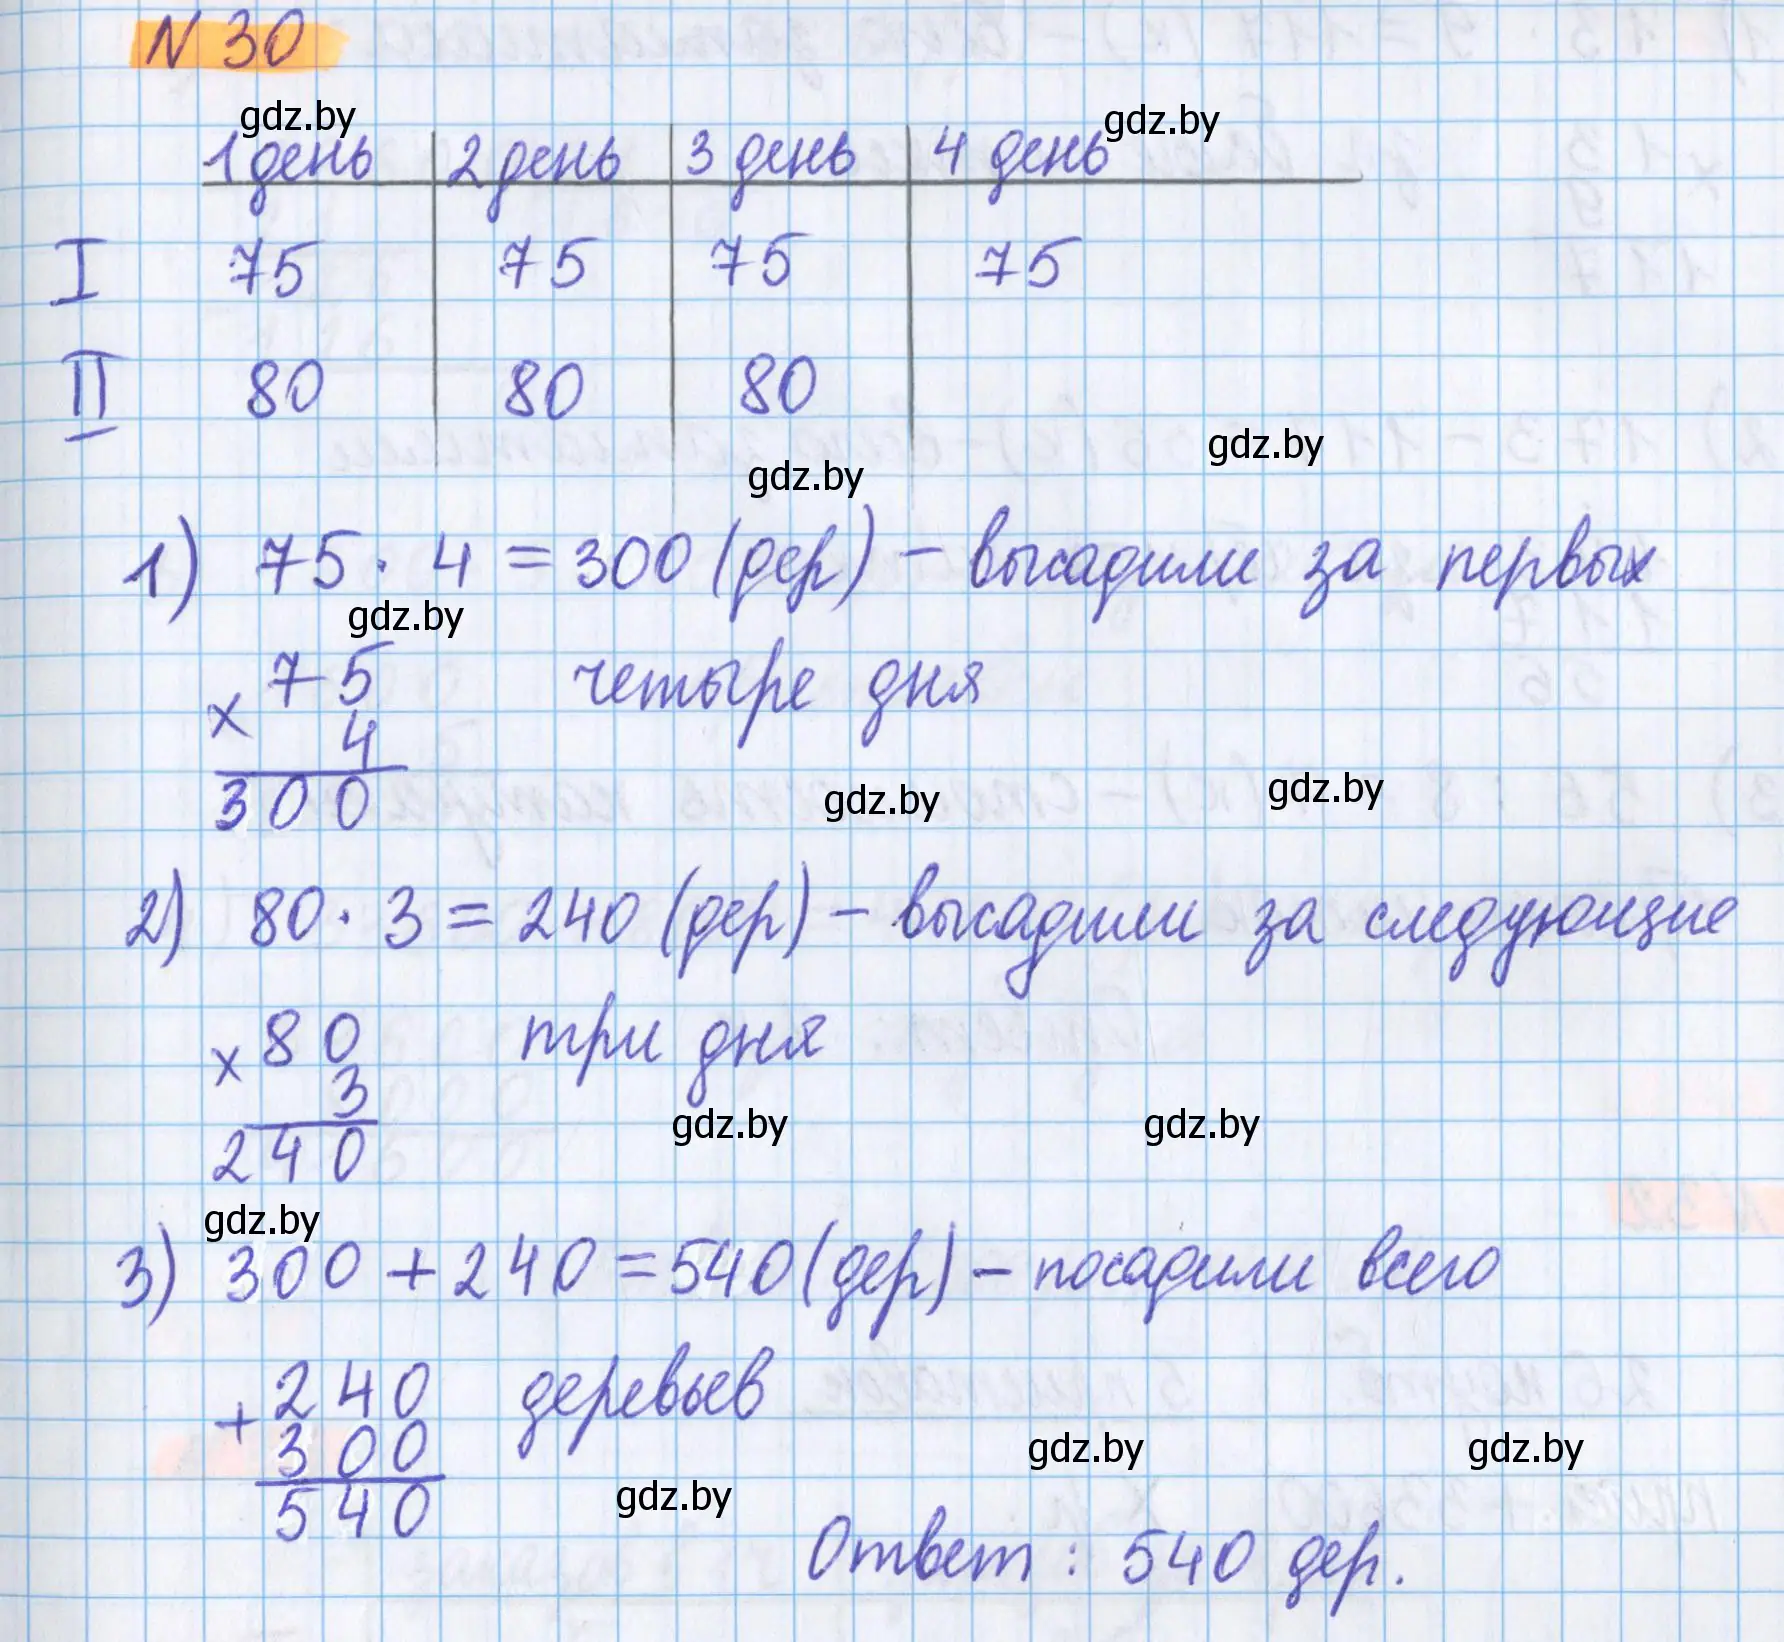 N 30
gdz.by
gdz.by
1 день 2 день 3 день 4 день
I 75 75 75 75
II 80 80 80
gdz.by
gdz.by
1) 75 · 4 = 300 (дер) - высадили за первых
gdz.by
× 75 четыре дня
4
300
gdz.by
gdz.by
2) 80 · 3 = 240 (дер) - высадили за следующие
× 80 три дня
3
240
gdz.by
gdz.by
gdz.by
3) 300 + 240 = 540 (дер) - посадили всего
+ 240 деревьев
300
540
gdz.by
gdz.by
gdz.by
Ответ : 540 дер.